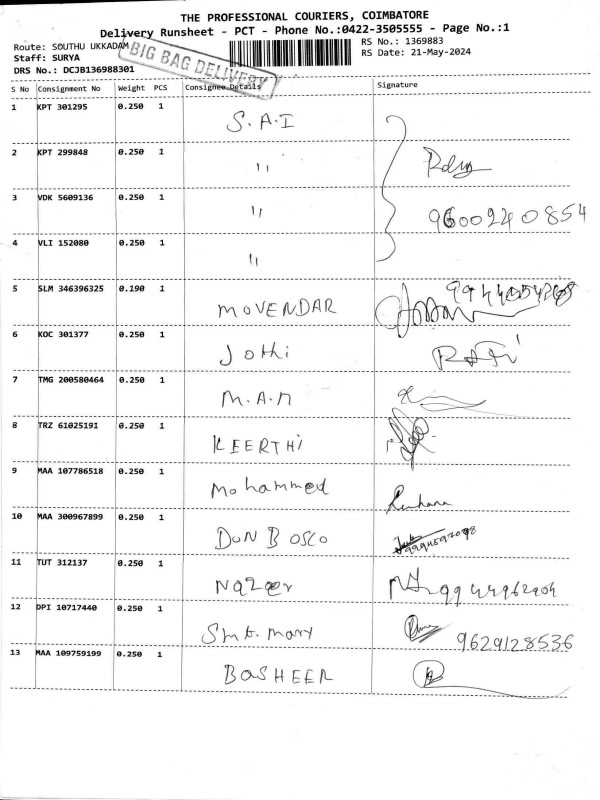 THE PROFESSIONAL COURIERS, COIMBATORE
Delivery Runsheet - PCT - Phone No.:0422-3505555 - Page No.:1
Route: SOUTHU UKKADAM
RS No.: 1369883
Staff: SURYA
RS Date: 21-May-2024
DRS No.: DCJB136988301
BIG BAG DELIVERY
S No Consignment No Weight PCS Consignee Details Signature
1 KPT 301295 0.250 1 S.A.I
2 KPT 299848 0.250 1 "
3 VDK 5609136 0.250 1 " 9600240854
4 VLI 152080 0.250 1 "
5 SLM 346396325 0.190 1 MOVENDAR
6 KOC 301377 0.250 1 Jothi
7 TMG 200580464 0.250 1 M.A.M
8 TRZ 61025191 0.250 1 KEERTHI
9 MAA 107786518 0.250 1 Mohammed
10 MAA 300967899 0.250 1 DON BOSCO
11 TUT 312137 0.250 1 Nazeer
12 DPI 10717440 0.250 1 Smt. mary 9629128536
13 MAA 109759199 0.250 1 BASHEER